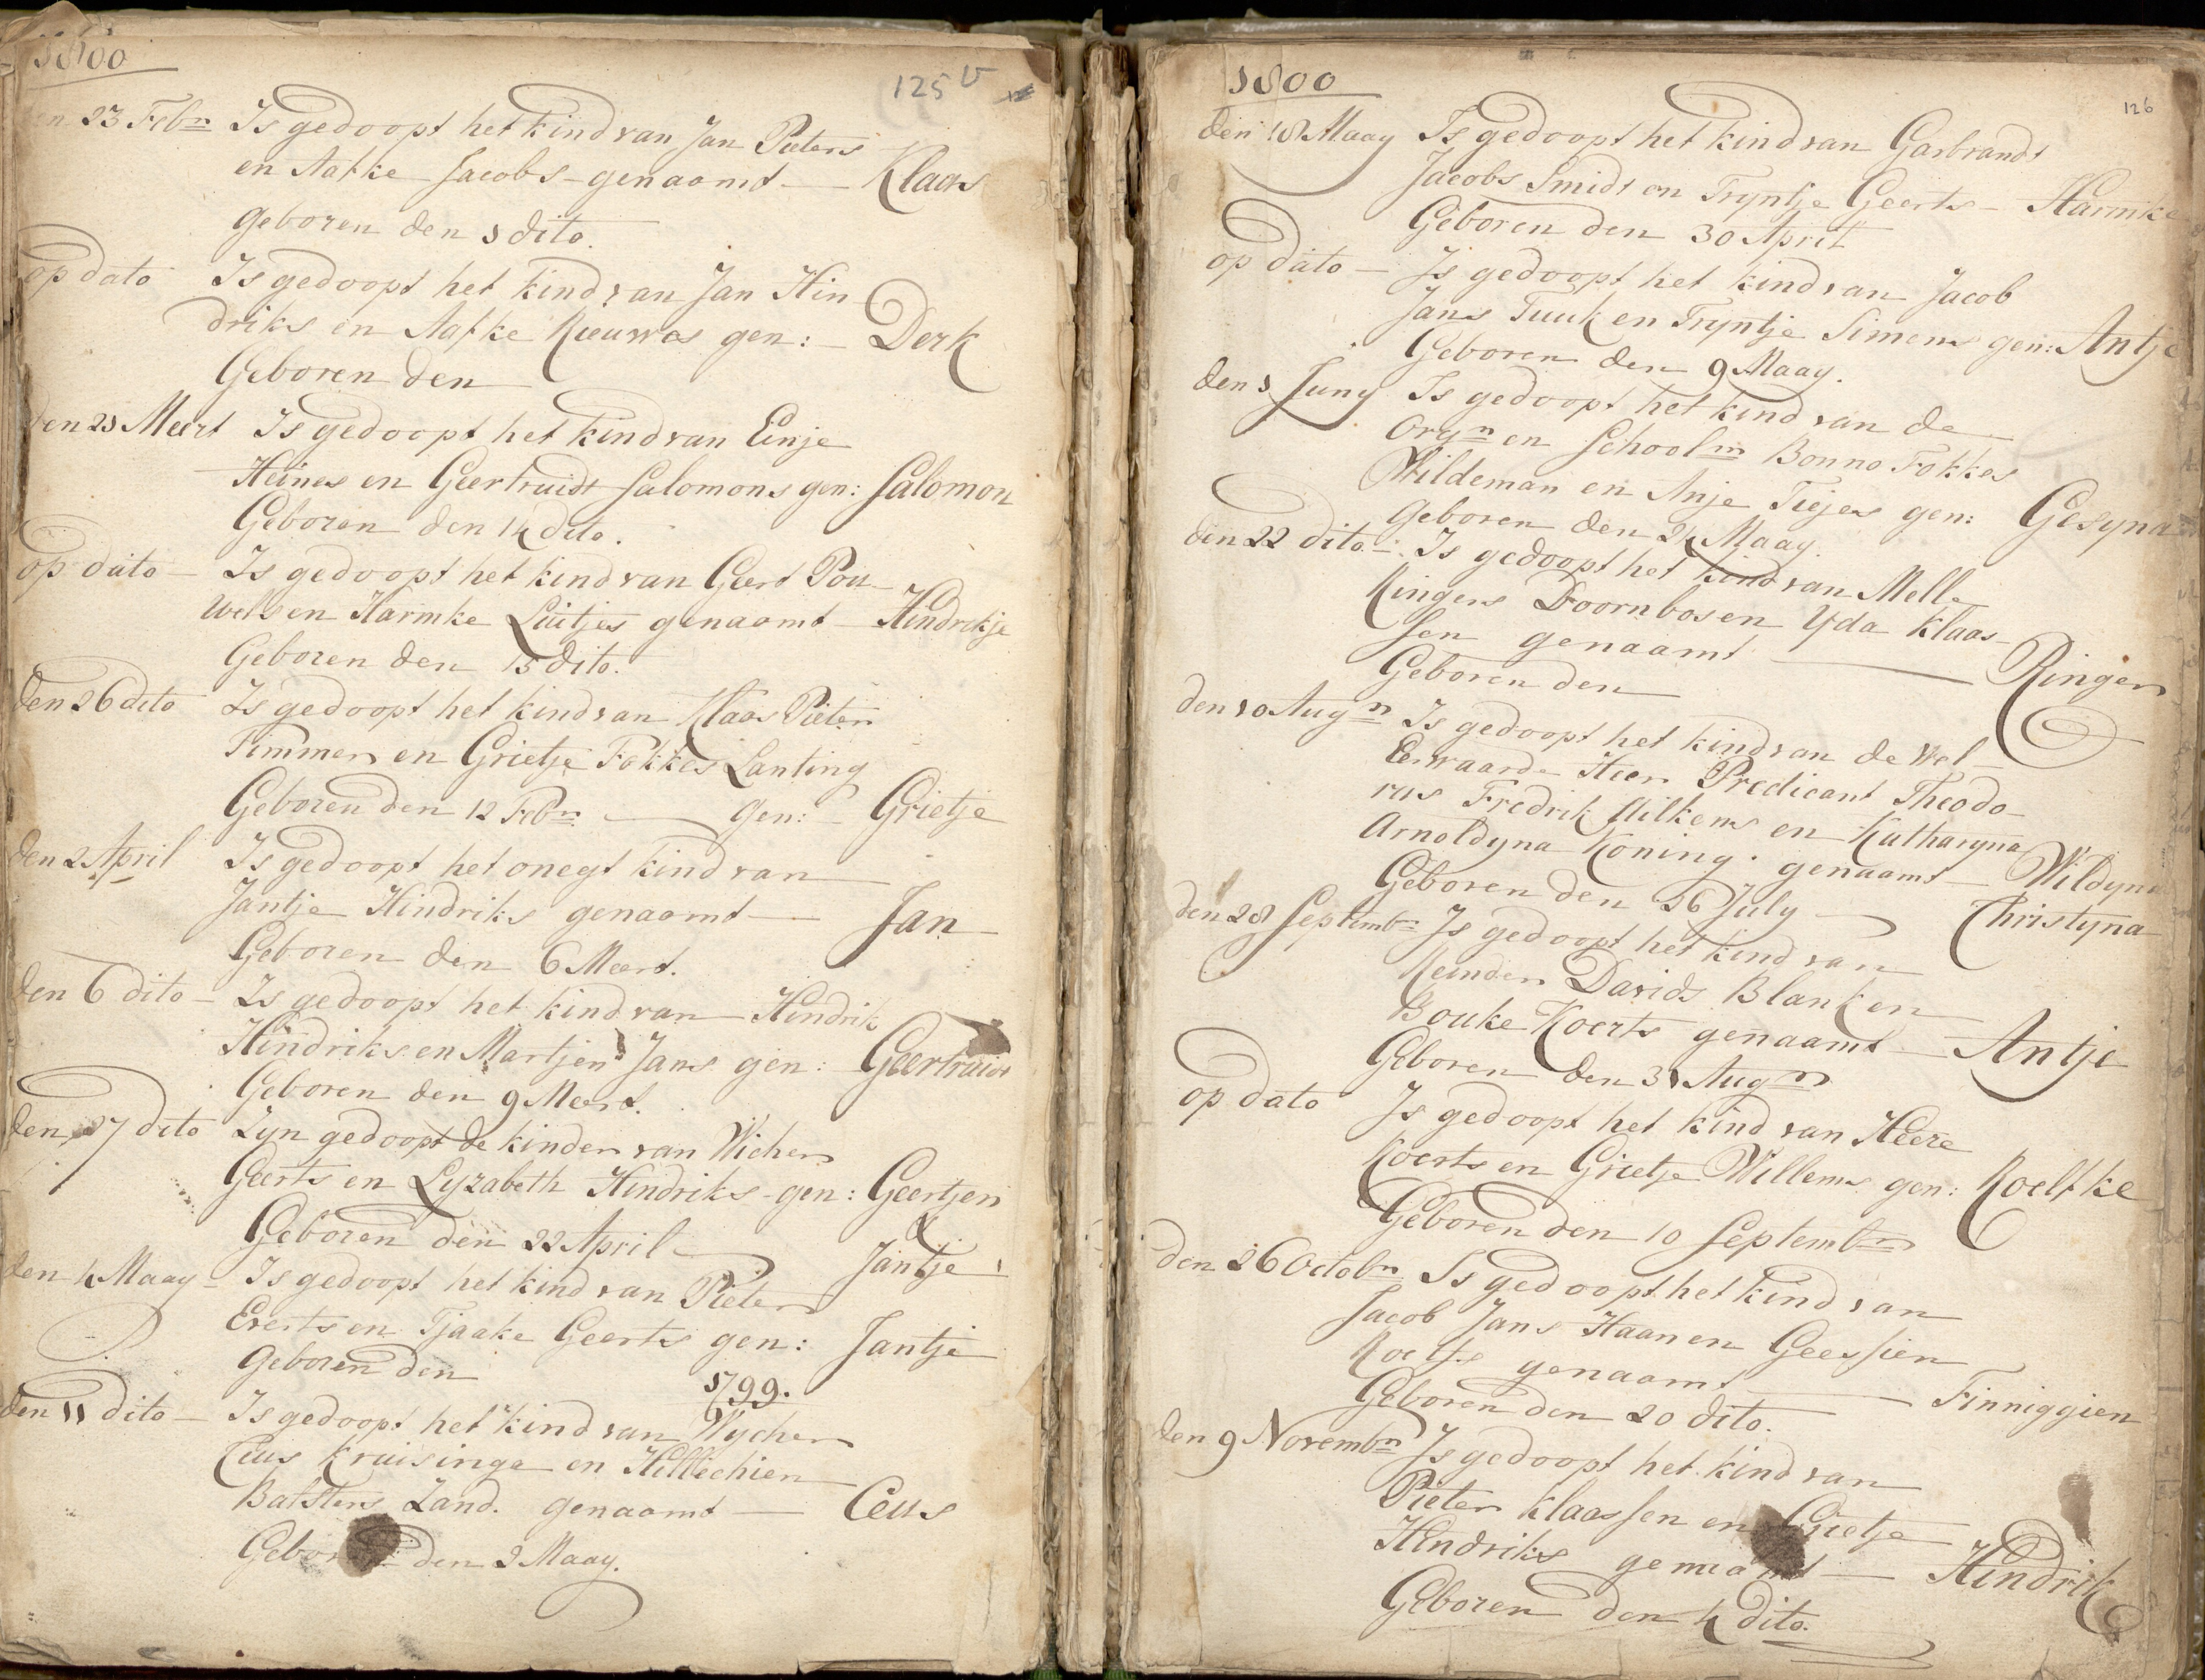 1800
125 v
den 23 Febrn Is gedoopt het kind van Jan Pieters
en Aafke Jacobs - genaamt — Klaas
geboren den 1 dito.
op dato Is gedoopt het kind van Jan Hin-
driks en Aafke Rieuwes gen: — Derk
Geboren den
den 23 Meert Is gedoopt het kind van Einje
Heines en Geertruidt Salomons gen: Salomon
Geboren den 14 dito.
op dato — Is gedoopt het kind van Geert Pou-
wels en Harmke Luitjes genaamt — Hindrikje
Geboren den 15 dito.
den 26 dito Is gedoopt het kind van Klaas Pieters
Timmer en Grietje Fokkes Lanting
Geboren den 12 Febrn — gen: — Grietje
den 2 April Is gedoopt het onegt kind van
Jantje Hindriks genaamt — Jan
Geboren den 6 Meert.
den 6 dito — Is gedoopt het kind van Hindrik
Hindriks en Martjen Jans gen: Geertruidt
Geboren den 9 Meert.
den 27 dito Zyn gedoopt de kinder van Wicher
Geerts en Lyzabeth Hindriks - gen: Geertjen
Geboren den 22 April &
Jantje
den 4 Maay — Is gedoopt het kind van Pieter
Everts en Tjaake Geerts gen: Jantje
geboren den
1799.
den 11 dito — Is gedoopt het kind van Wycher
Ceus Kruisinga en Hillechien
Balsters Zand. genaamt — Ceus
Geboren den 2 Maay.
1800
126
den 18 Maay Is gedoopt het kind van Garbrandt
Jacobs Smidt en Tryntje Geerts — Harmke
Geboren den 30 April
op dato — Is gedoopt het kind van Jacob
Jans Tuuk en Tryntje Simens gen: Antje
Geboren den 9 Maay.
den 1 Juny Is gedoopt het kind van de
Orgn en Schoolm Bonno Fokkes
Wildeman en Anje Tiejes gen: Gesyna
geboren den 24 Maay.
den 22 dito — Is gedoopt het kind van Melle
Ringers Doornbos en Yda Klaas-
sen genaamt — Ringer
Geboren den
den 10 Augn Is gedoopt het kind van de Wel-
Eerwaarde Heer Predicant Theodo-
rus Fredrik Uilkens en Katharyna
Arnoldyna Koning. genaamt — Wildyna
Geboren den 16 July — Christyna
den 28 Septembr Is gedoopt het kind van
Reinder Davids Blank en
Bouke Koerts genaamt — Antje
Geboren den 31 Augn
op dato Is gedoopt het kind van Heere
Koerts en Grietje Willems gen: Roelfke
Geboren den 10 Septembr
den 26 Octobr Is gedoopt het kind van
Jacob Jans Haan en Geessien
Roelfs genaamt — Finniggien
Geboren den 20 dito.
den 9 Novembr Is gedoopt het kind van
Pieter Klaassen en Grietje
Hindriks genaamt — Hindrik
Geboren den 4 dito.